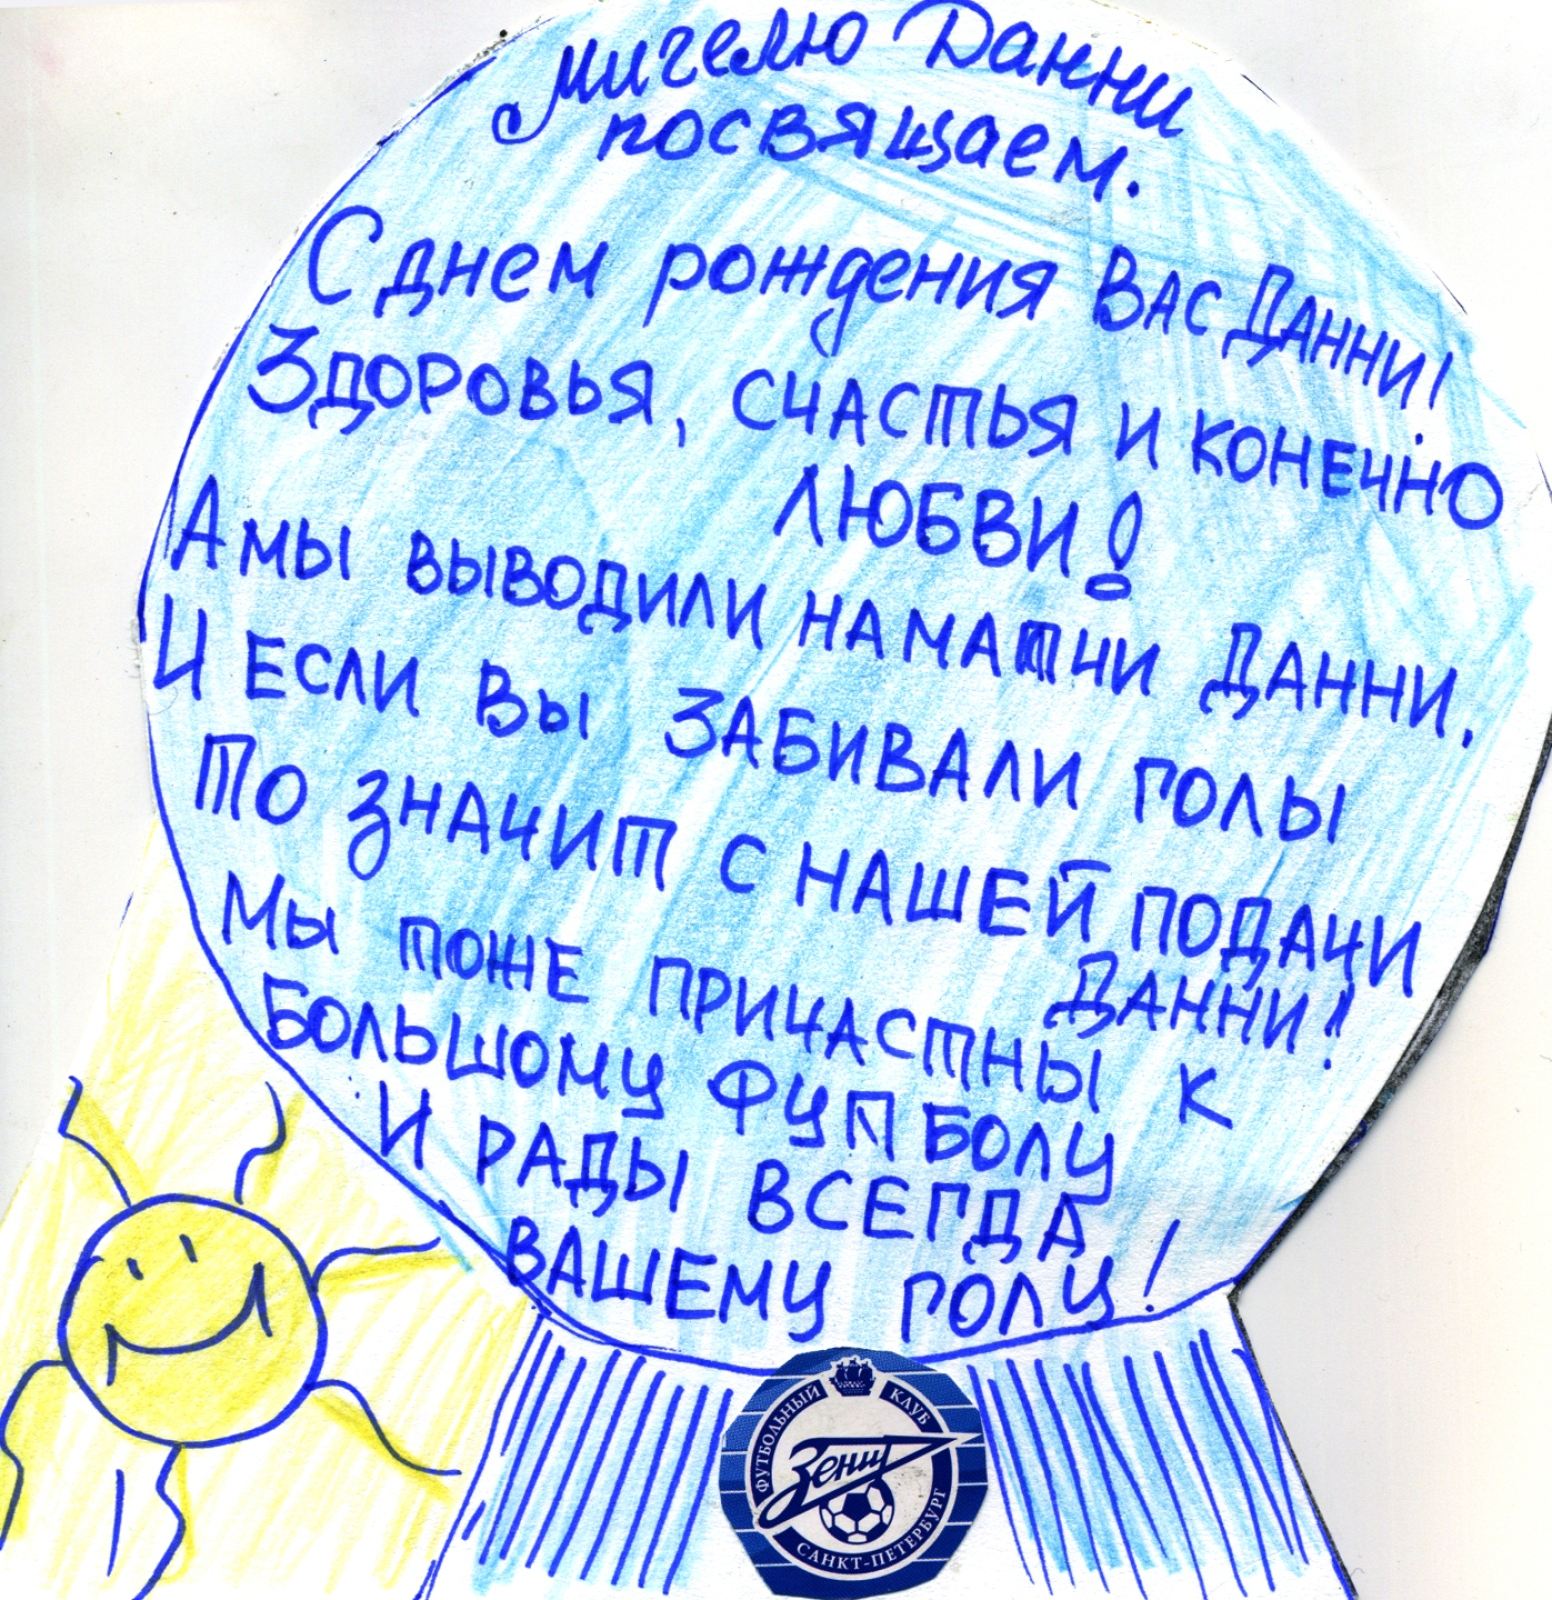 Мигелю Данни
посвящаем.
С днем рождения Вас Данни!
Здоровья, счастья и конечно
любви!
А мы выводили на матчи Данни.
И если Вы забивали голы
То значит с нашей подачи
Данни!
Мы тоже причастны к
большому футболу
И рады всегда
вашему голу!
ФУТБОЛЬНЫЙ КЛУБ
Зенит
САНКТ-ПЕТЕРБУРГ